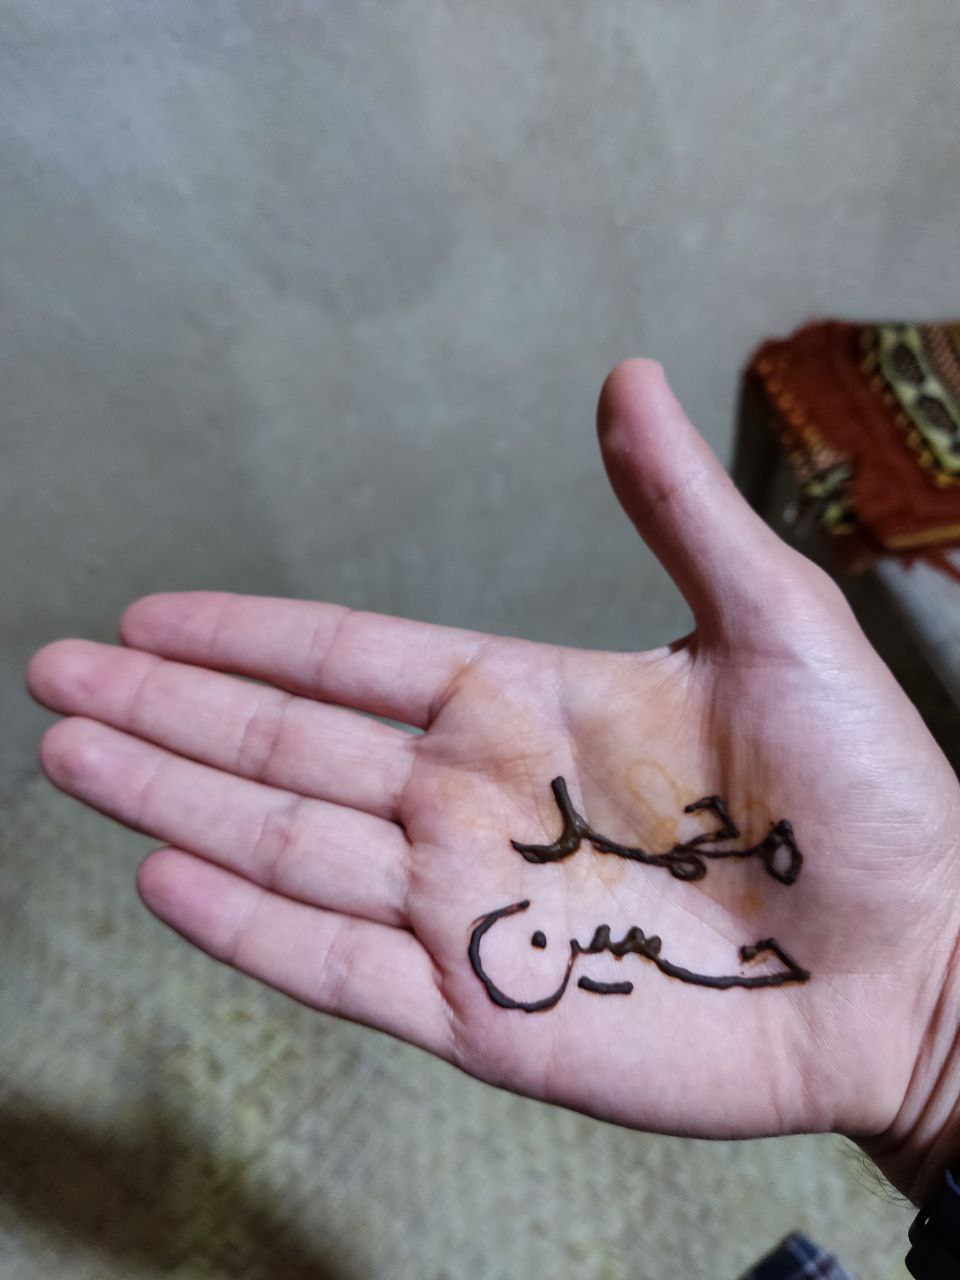 محمد
حسين